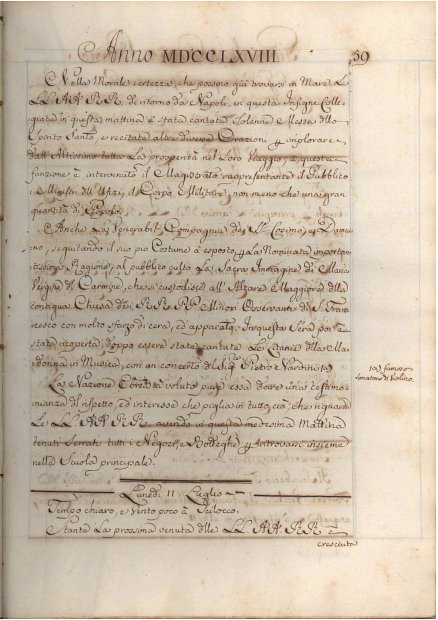 Anno MDCCLXVIII 59
Nella Morale certezza, che possino già trovarsi in Mare Le
LL. AA. RR. di ritorno da Napoli, in questa Insigne Colle
giata in questa mattina è stata cantata solenne Messa dello
Spirito Santo, e recitate altre diverse Orazioni p implorare
dall' Altissimo tutta La prosperità nel Loro Viaggio, a questa
funzione è intervenuto il Magistrato rappresentante il Pubblico
i Ministri degli Ufizi, il Corpo Militare, non meno che una gran
quantità di Popolo.
Anche La Venerabil Compagnia dei SSti Cosimo, e Dami
ano, seguitando il suo pio Costume à esposto p La Nominata importan
tissima Ragione, al pubblico culto La Sacra Immagine di Maria
Vergine del Carmine, che si custodisce all' Altare Maggiore della
contigua Chiesa dei RR. PP. Minori Osservanti di S. Fran
cesco con molto sfarzo di cera, ed apparato. In questa Sera poi è
stata ricoperta, doppo essere state cantate Le Litanie della Ma
donna in Musica, con un concerto del Sig. Pietro Nardini (a)
(a) famoso
sonatore di Violino.
La Nazione Ebrea à voluto pure essa dare una testimo
nianza di rispetto, ed interesse che piglia in tutto ciò, che riguarda
Le LL. AA. RR. avendo in questa medesima Mattina
tenuti serrati tutti i Negozi, e Botteghe, p ritrovarsi insieme
nella Scuola principale.
Lunedì 11 Luglio
Tempo chiaro, e Vento poco à Scilocco.
Stante La prossima venuta delle LL. AA. RR. è
cresciuta